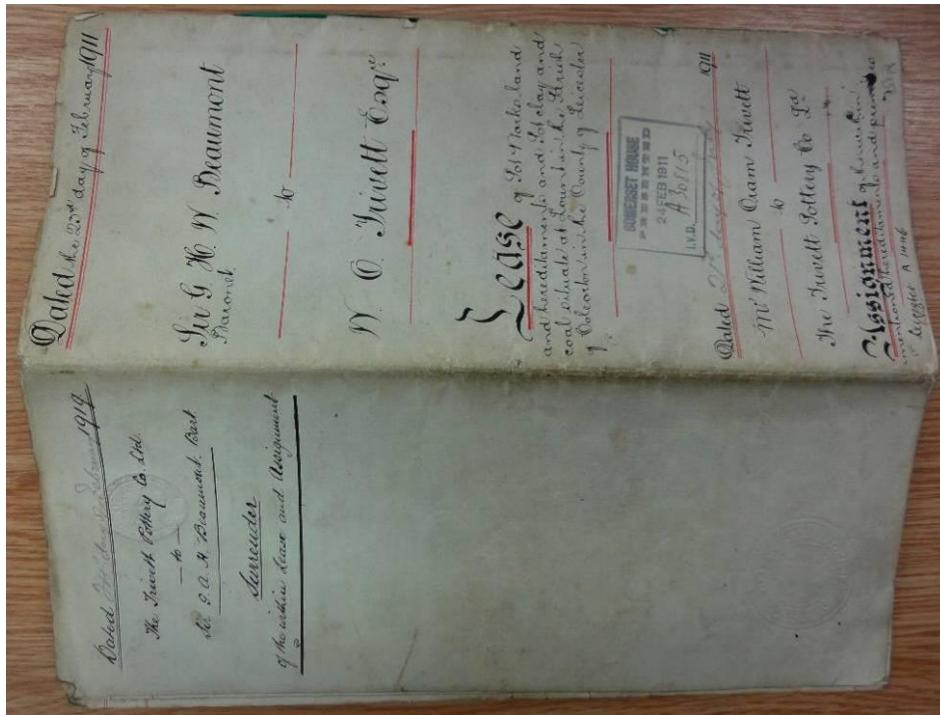 Dated the 23rd day of February 1911
Sir G. H. W. Beaumont
Baronet
to
W. O. Trivett Esqre
Lease of Pot Works land
and hereditaments and Pot clay and
coal situate at Lount in the Parish
of Coleorton in the County of Leicester
SOMERSET HOUSE
PRESENTED
24 FEB 1911
I.V.D.
Dated 1911
Mr William Oram Trivett
to
The Trivett Pottery Co Ld
Assignment of the within
mentioned hereditaments and premises
Dated February 1919
The Trivett Pottery Co. Ltd.
to
Sir G. A. H. Beaumont. Bart
Surrender
of the within Lease and Assignment